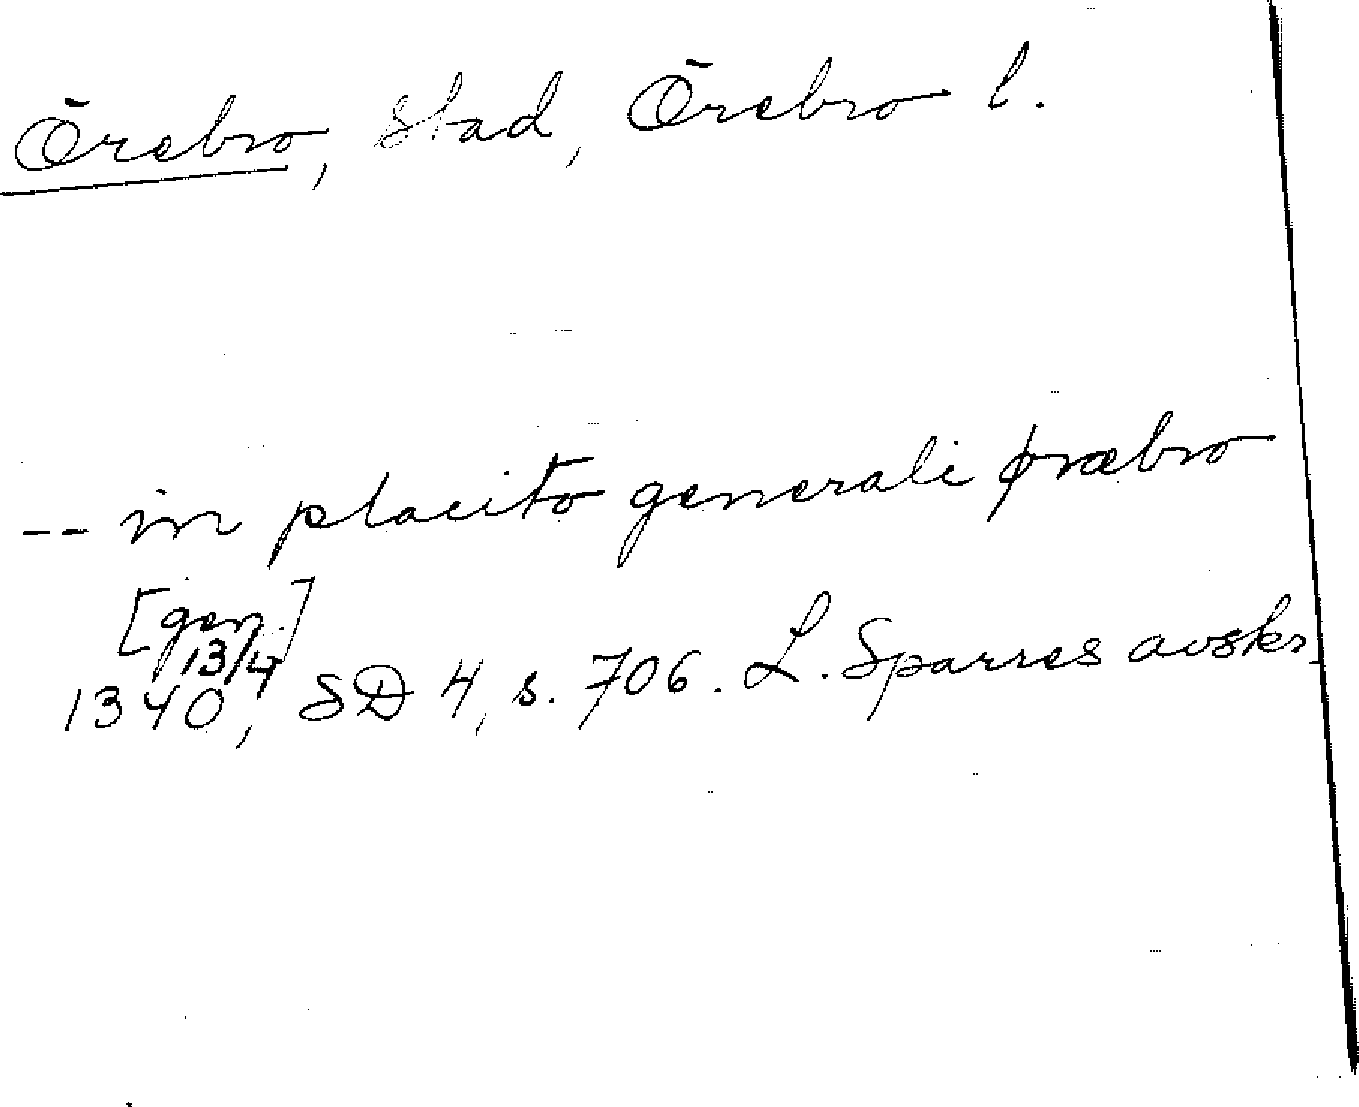 Örebro, stad, Örebro l.
-- in placito generali øræbro
[gen.]
13/4
1340, SD 4, s. 706. L. Sparres avskr.